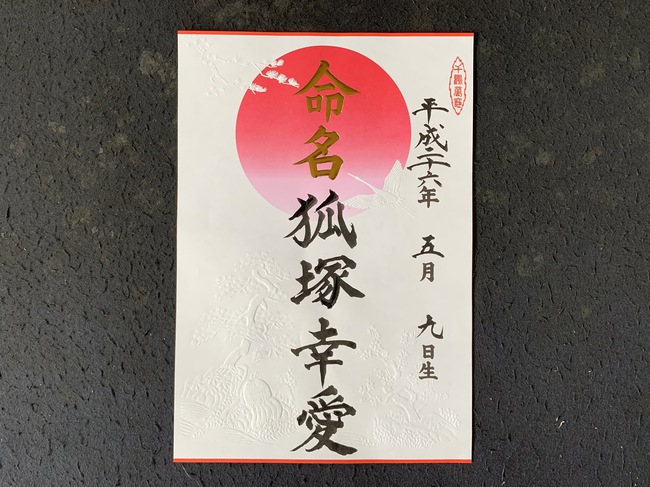 平成二十六年 五月 九日生
命名 狐塚幸愛